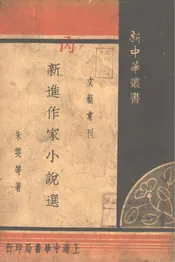 新中華叢書
文藝彙刊
丙
新進作家小說選
朱雯等著
上海中華書局印行